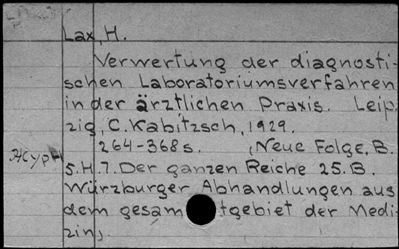 Lax, H.
Verwertung der diagnosti-
schen Laboratoriumsverfahren
in der ärztlichen Praxis. Leip-
zig, C. Kabitzsch, 1929.
264-368 s. (Neue Folge, B.
5. H. 7. Der ganzen Reiche 25. B.
Würzburger Abhandlungen aus
dem gesamtgebiet der Medi-
zin).